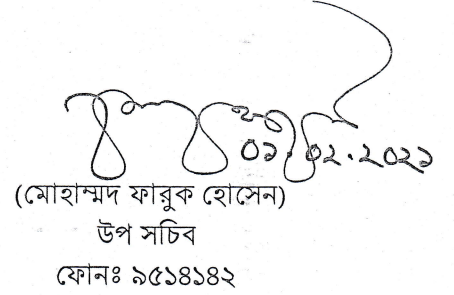 ০১.০২.২০২১
(মোহাম্মদ ফারুক হোসেন)
উপ সচিব
ফোনঃ ৯৫১৪১৪২